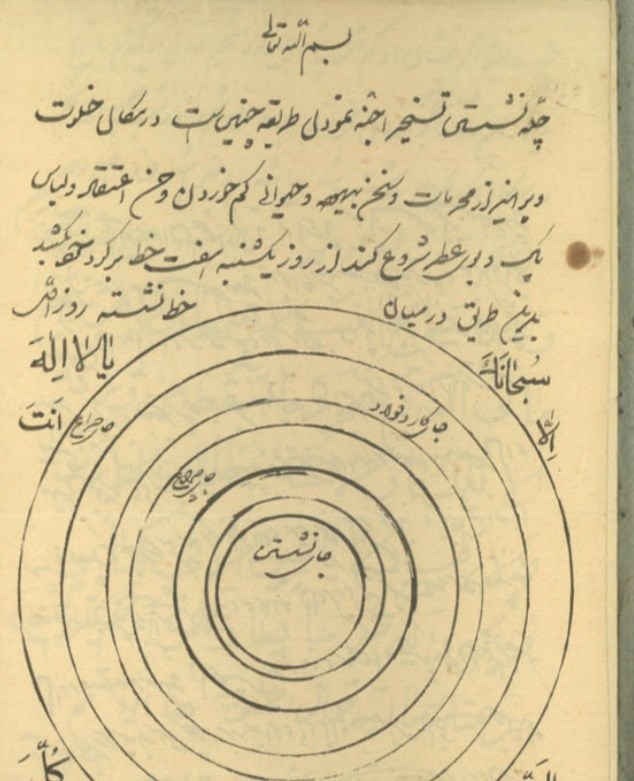 بسم الله تعالی
چله نشستن تسخیر اجنه نمودل طریقه چنین است در مکان خلوت
و پرهیز از محرمات و سخن بیهوده و حیوانی کم خوردن و حسن اعتقاد و لباس
پاک و بوی عطر شروع کند از روز یکشنبه هفت خط برگرد خود بکشد
بدین طریق در میان خط نشسته روز اول
سُبحانَكَ یا لا اِلهَ
اِلّا اَنتَ
جای کارد فولاد
جای چراغ
جای چراغ
جای نشستن